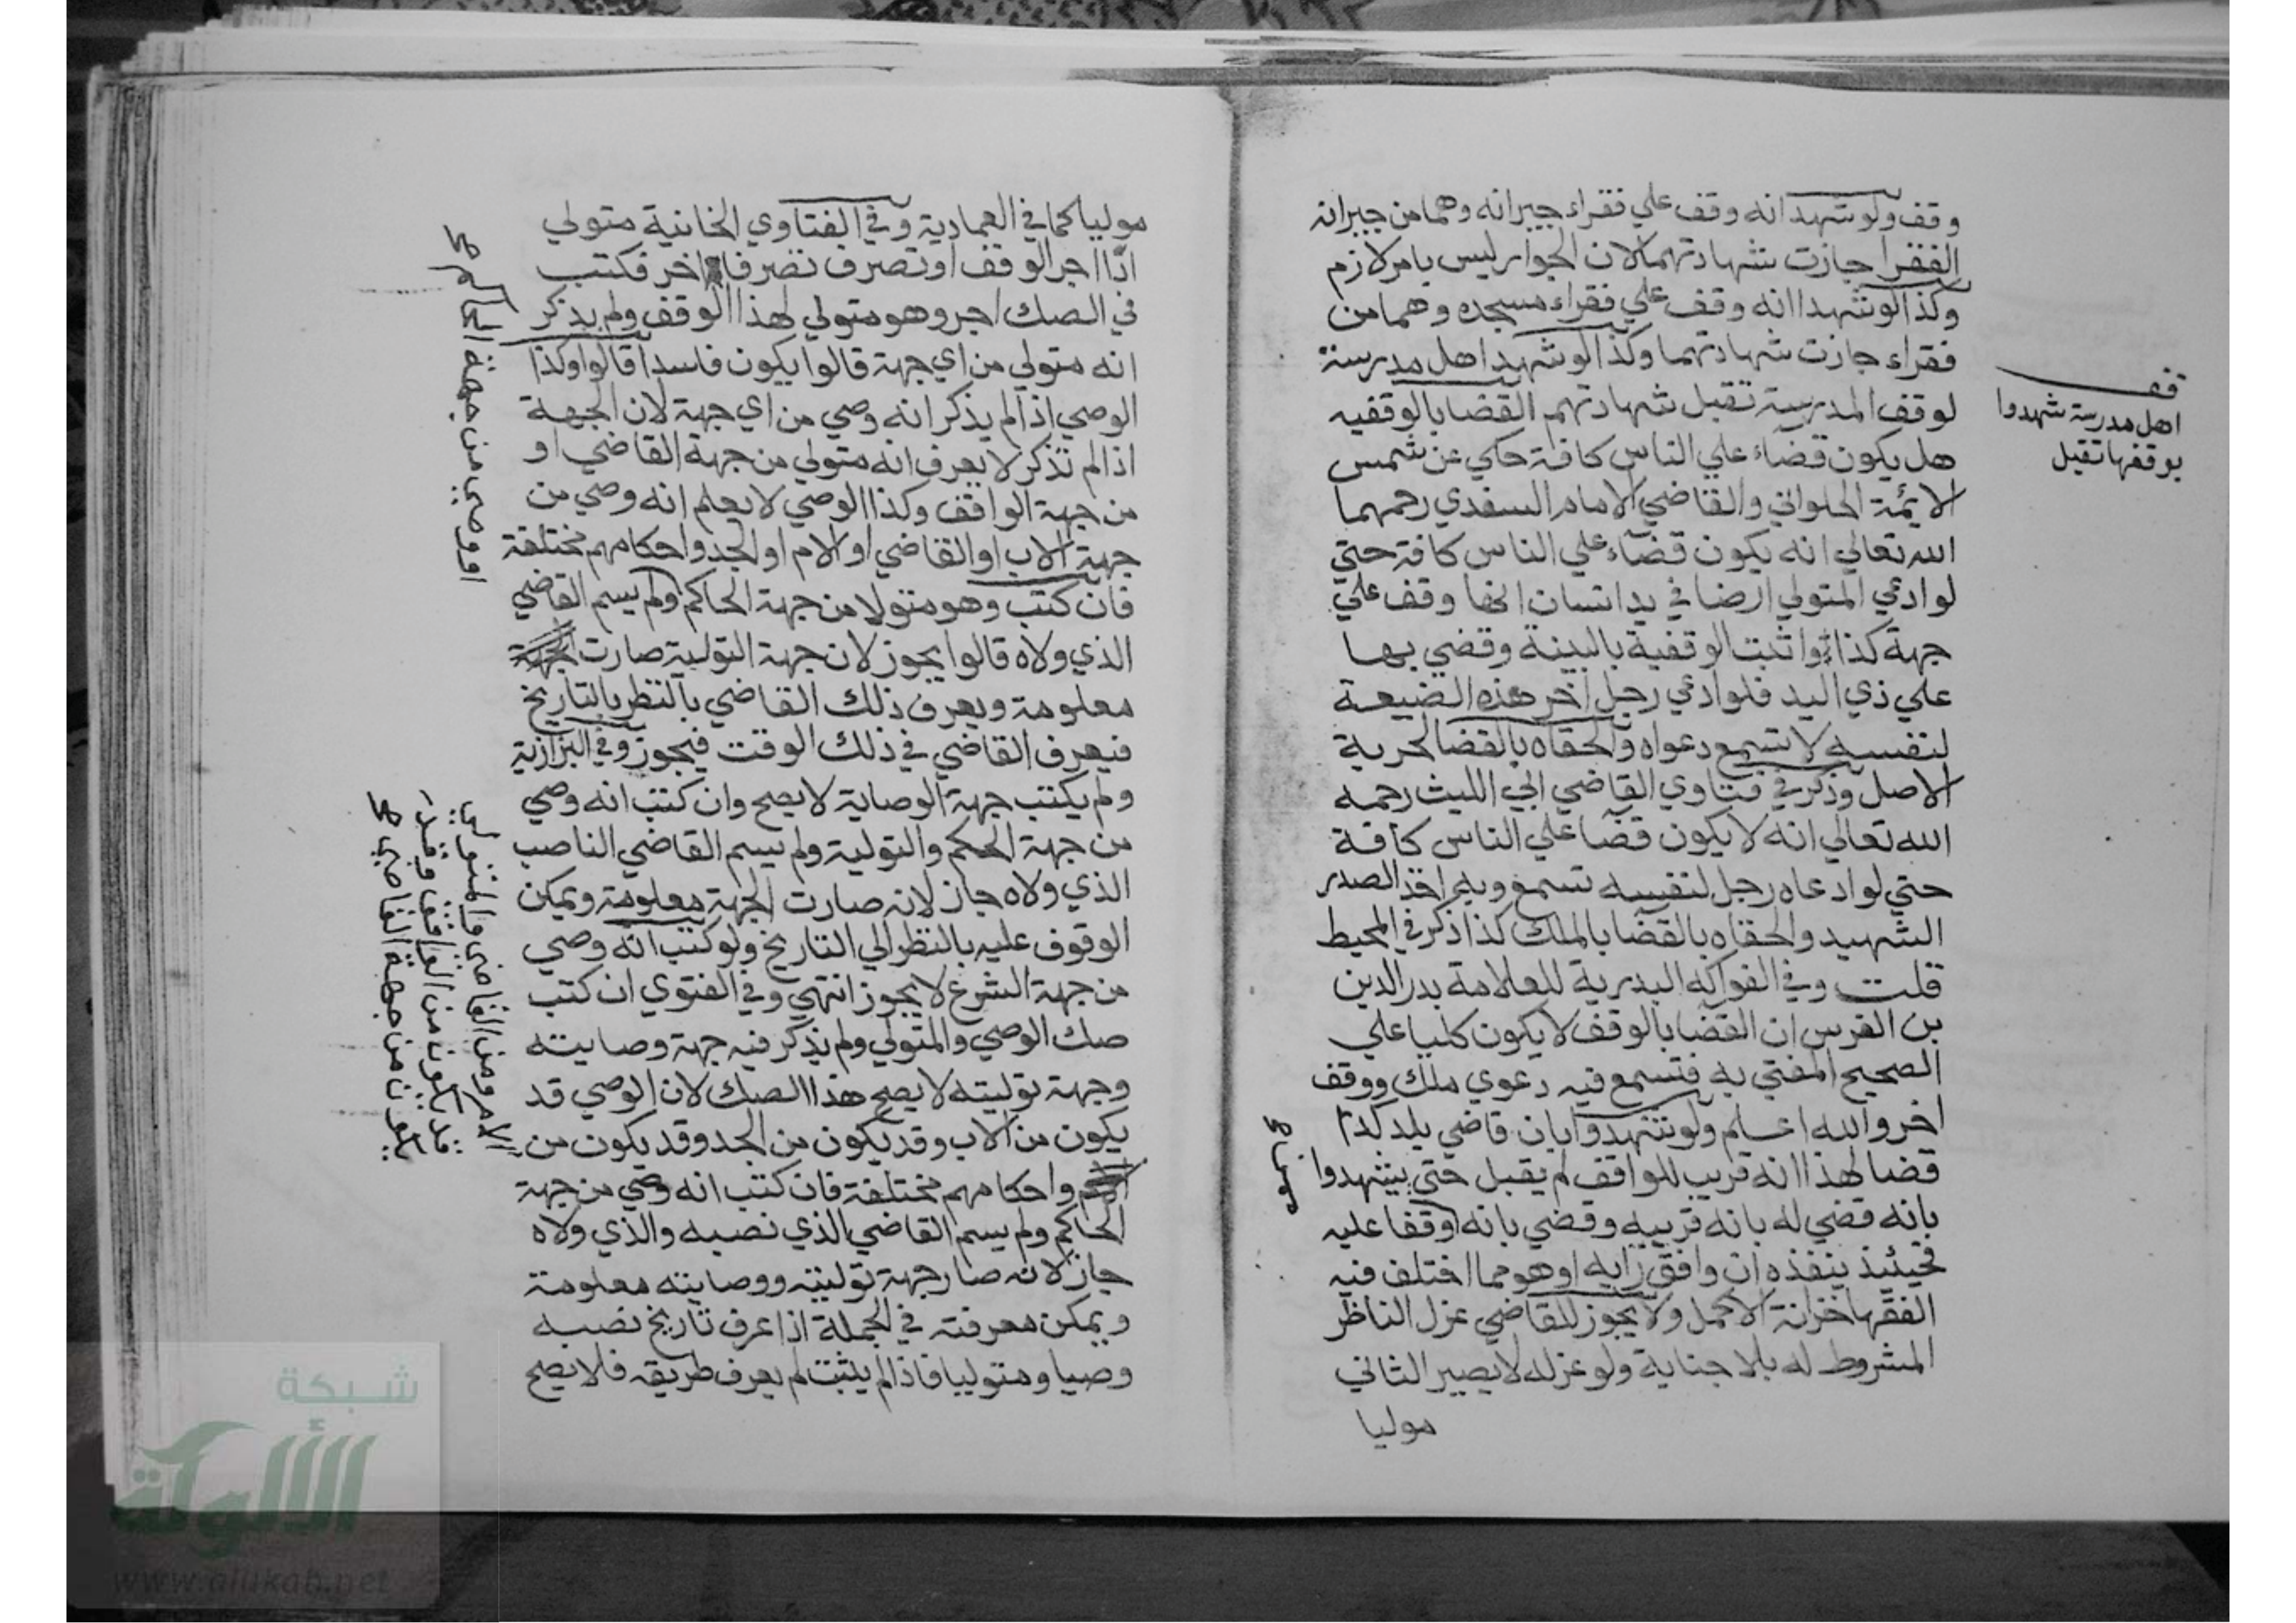 وقف ولو شهدا انه وقف علي فقراء جيرانه وهما من جيرانه
الفقرا جازت شهادتهما لان الجوار ليس بامر لازم
وكذا لو شهدا انه وقف علي فقراء مسجده وهما من
فقراء جازت شهادتهما وكذا لو شهد اهل مدرسة
لوقف المدرسة تقبل شهادتهم القضا بالوقفيه
هل يكون قضاء علي الناس كافة حكي عن شمس
الايمة الحلواني والقاضي الامام السغدي رحمهما
الله تعالي انه يكون قضاء علي الناس كافة حتي
لو ادعي المتولي ارضا في يد انسان انها وقف علي
جهة كذا واثبت الوقفية بالبينة وقضي بها
علي ذي اليد فلو ادعي رجل اخر هذه الضيعة
لنفسه لا تسمع دعواه والحقاه بالقضا لحرية
الاصل وذكر في فتاوي القاضي ابي الليث رحمه
الله تعالي انه لا يكون قضا علي الناس كافة
حتي لو ادعاه رجل لنفسه تسمع وبه اخذ الصدر
الشهيد والحقاه بالقضا بالملك كذا ذكر في المحيط
قلت وفي الفواكه البدرية للعلامة بدر الدين
بن الغرس ان القضا بالوقف لا يكون كليا علي
الصحيح المفتي به فتسمع فيه دعوي ملك ووقف
اخر والله اعلم ولو شهدوا بان قاضي بلد كذا
قضا لهذا انه قريب للواقف لم يقبل حتي يشهدوا
بانه قضي له بانه قريبه وقضي بانه وقفا عليه
فحينئذ ينفذه ان وافق رايه او هو مما اختلف فيه
الفقها خزانة الاكمل ولا يجوز للقاضي عزل الناظر
المشروط له بلا جناية ولو عزله لا يصير الثاني
موليا
قف
اهل مدرسة شهدوا
بوقفها تقبل
موليا كما في العمادية وفي الفتاوي الخانية متولي
اذا اجر الوقف او تصرف تصرفا اخر فكتب
في الصك اجر وهو متولي لهذا الوقف ولم يذكر
انه متولي من اي جهة قالوا يكون فاسدا قالوا وكذا
الوصي اذا لم يذكر انه وصي من اي جهة لان الجهة
اذا لم تذكر لا يعرف انه متولي من جهة القاضي او
من جهة الواقف وكذا الوصي لا يعلم انه وصي من
جهة الاب او القاضي او الام او الجد واحكامهم مختلفة
فان كتب وهو متولا من جهة الحاكم ولم يسم القاضي
الذي ولاه قالوا يجوز لان جهة التولية صارت
معلومة ويعرف ذلك القاضي بالنظر بالتاريخ
فيعرف القاضي في ذلك الوقت فيجوز وفي البزازية
ولم يكتب جهة الوصاية لا يصح وان كتب انه وصي
من جهة الحكم والتولية ولم يسم القاضي الناصب
الذي ولاه جاز لانه صارت الجهة معلومة ويمكن
الوقوف عليه بالنظر الي التاريخ ولو كتب انه وصي
من جهة الشرع لا يجوز انتهي وفي الفتوي ان كتب
صك الوصي والمتولي ولم يذكر فيه جهة وصايته
وجهة توليته لا يصح هذا الصك لان الوصي قد
يكون من الاب وقد يكون من الجد وقد يكون من
واحكامهم مختلفة فان كتب انه وصي من جهة
الحاكم ولم يسم القاضي الذي نصبه والذي ولاه
جاز لانه صار جهة توليته ووصايته معلومة
ويمكن معرفته في الجملة اذا عرف تاريخ نصبه
وصيا ومتوليا فاذا لم يثبت لم يعرف طريقه فلا يصح
او وصي من جهة الحاكم صح
الام ومن القاضي والمتولي
قد يكون من الواقف وقد
يكون من جهة القاضي صح
شبكة
الألوكة
www.alukah.net